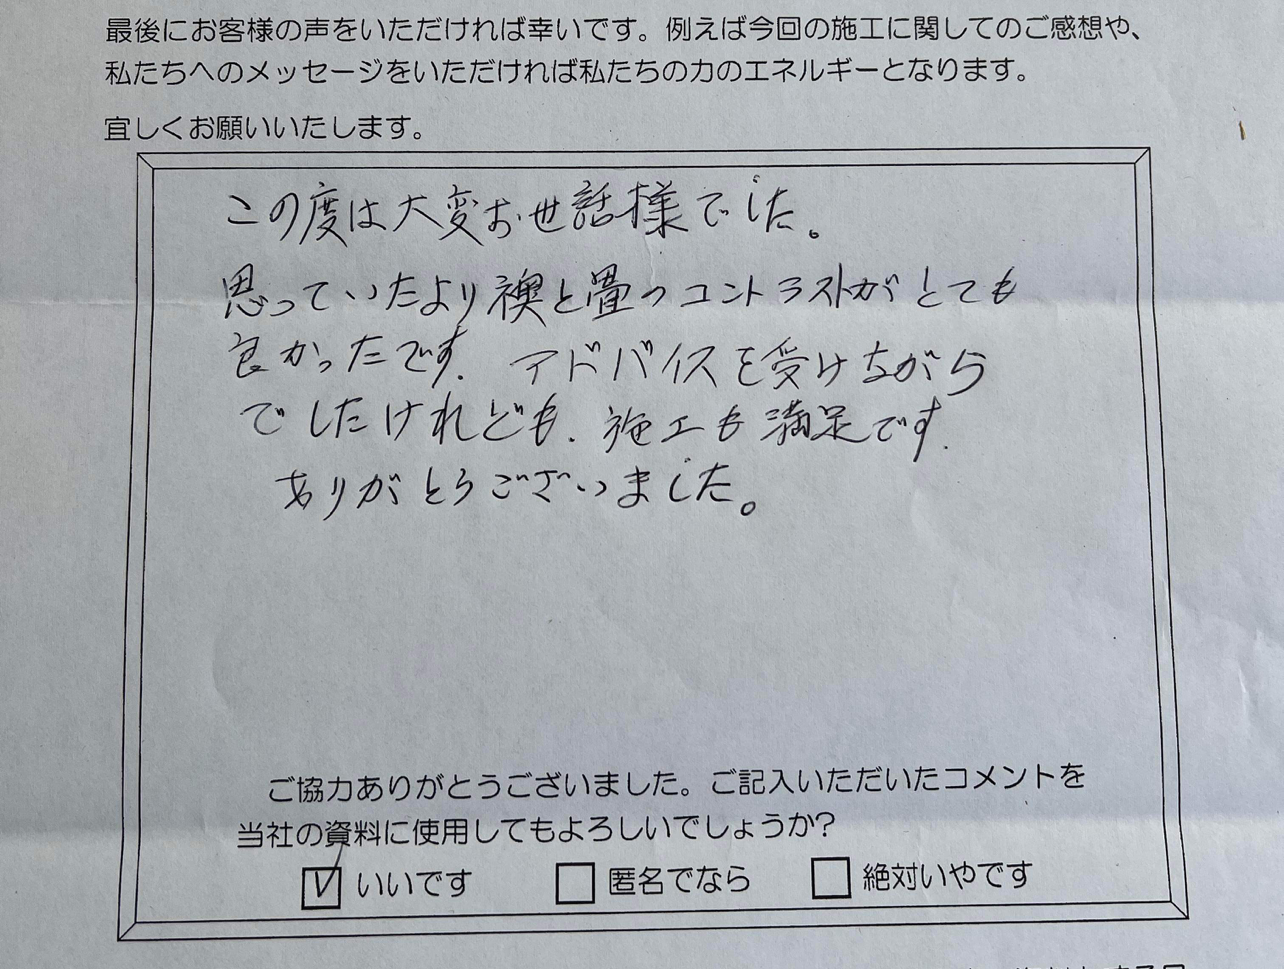 最後にお客様の声をいただければ幸いです。例えば今回の施工に関してのご感想や、
私たちへのメッセージをいただければ私たちの力のエネルギーとなります。
宜しくお願いいたします。
この度は大変お世話様でした。
思っていたより襖と畳のコントラストがとても
良かったです。アドバイスを受けながら
でしたけれども、施工も満足です。
ありがとうございました。
ご協力ありがとうございました。ご記入いただいたコメントを
当社の資料に使用してもよろしいでしょうか?
いいです 匿名でなら 絶対いやです